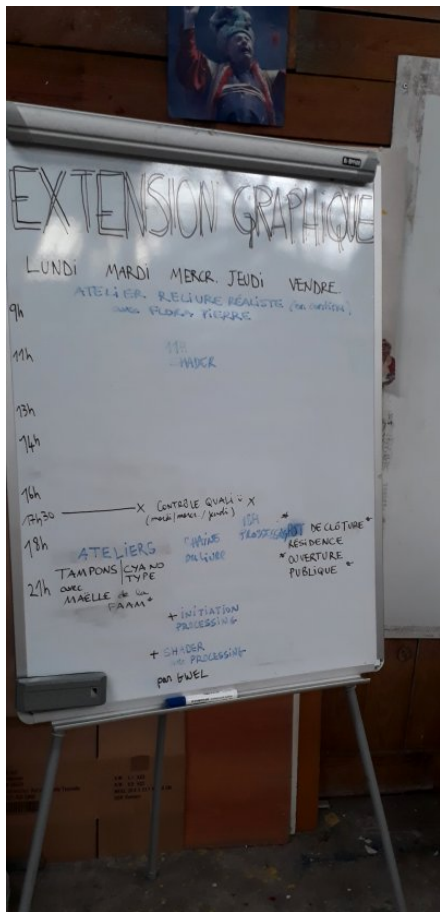 EXTENSION GRAPHIQUE
LUNDI MARDI MERCR. JEUDI VENDRE.
ATELIER RELIURE RÉALISTE
9h avec FLORA PIERRE
11h
SHADER
13h
14h
16h
17h30 X CONTRÔLE QUALI X
(mardi/mercr./jeudi)
18h
ATELIERS
TAMPONS CYANO TYPE
21h avec MAËLLE de la FAAM*
CHAÎNE DU LIVRE
18H
* DE CLÔTURE *
RÉSIDENCE
* OUVERTURE
PUBLIQUE *
+ INITIATION
PROCESSING
+ SHADER
PROCESSING
par GWEL